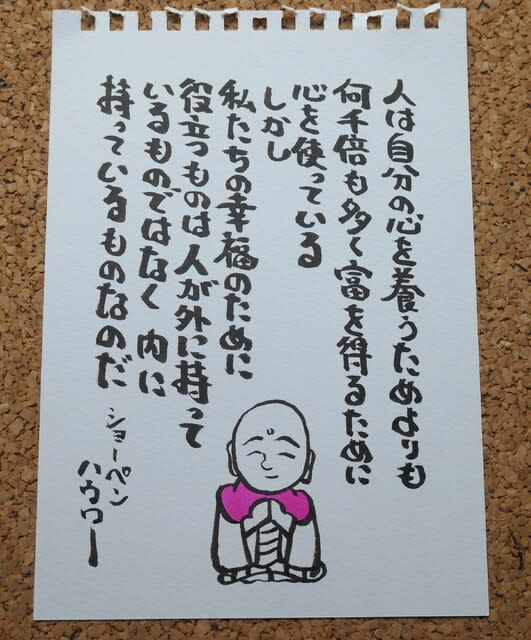 人は自分の心を養うためよりも
何千倍も多く富を得るために
心を使っている
しかし
私たちの幸福のために
役立つものは人が外に持って
いるものではなく 内に
持っているものなのだ
ショーペン
ハウワー